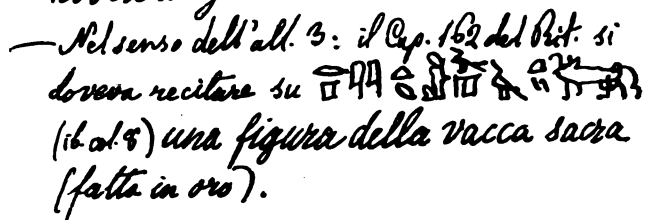 — Nel senso dell'all. 3: il Cap. 162 del Rit. si
doveva recitare su
(ib. col. 8) una figura della vacca sacra
(fatta in oro).